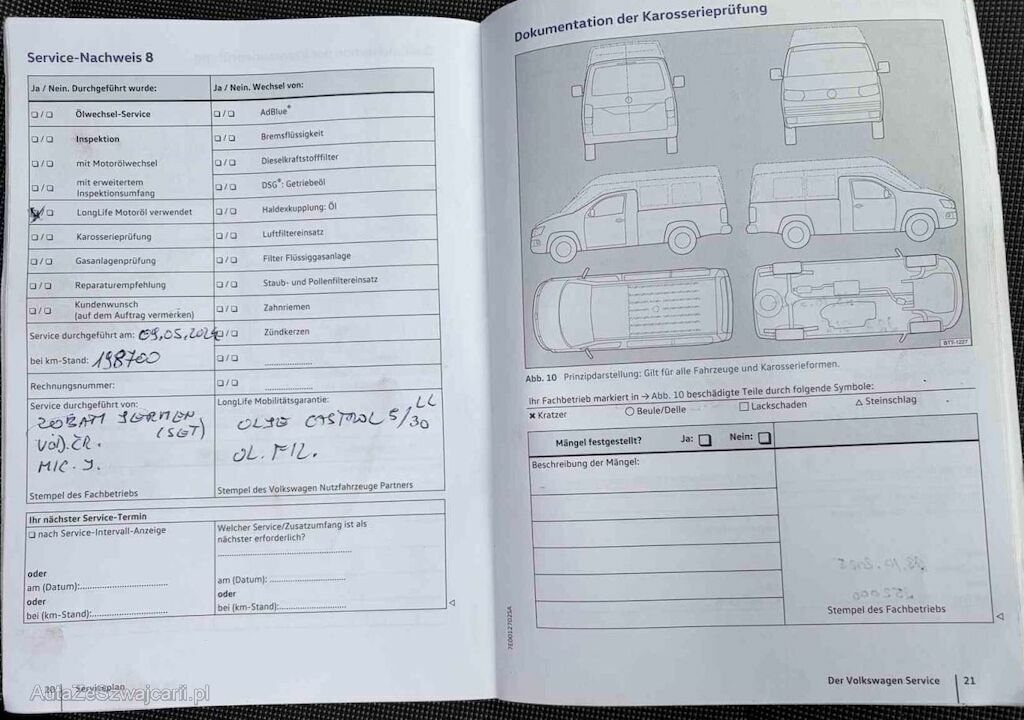 Service-Nachweis 8
Ja / Nein. Durchgeführt wurde: Ja / Nein. Wechsel von:
Ölwechsel-Service
Inspektion
mit Motorölwechsel
mit erweitertem
Inspektionsumfang
LongLife Motoröl verwendet
Karosserieprüfung
Gasanlagenprüfung
Reparaturempfehlung
Kundenwunsch
(auf dem Auftrag vermerken)
AdBlue®
Bremsflüssigkeit
Dieselkraftstofffilter
DSG®: Getriebeöl
Haldexkupplung: Öl
Luftfiltereinsatz
Filter Flüssiggasanlage
Staub- und Pollenfiltereinsatz
Zahnriemen
Zündkerzen
Service durchgeführt am: 09.05.2024
bei km-Stand: 198700
Rechnungsnummer:
Service durchgeführt von:
(SET)
MIC. J.
Stempel des Fachbetriebs
LongLife Mobilitätsgarantie:
LL
5/30
OL. FIL.
Stempel des Volkswagen Nutzfahrzeuge Partners
Ihr nächster Service-Termin
nach Service-Intervall-Anzeige
oder
am (Datum):
oder
bei (km-Stand):
Welcher Service/Zusatzumfang ist als
nächster erforderlich?
am (Datum):
oder
bei (km-Stand):
20 Serviceplan
AutaZeSzwajcarii.pl
Dokumentation der Karosserieprüfung
BTT-1227
Abb. 10 Prinzipdarstellung: Gilt für alle Fahrzeuge und Karosserieformen.
Ihr Fachbetrieb markiert in → Abb. 10 beschädigte Teile durch folgende Symbole:
Kratzer Beule/Delle Lackschaden Steinschlag
Mängel festgestellt? Ja: Nein:
Beschreibung der Mängel:
Stempel des Fachbetriebs
7E0012702SA
Der Volkswagen Service 21